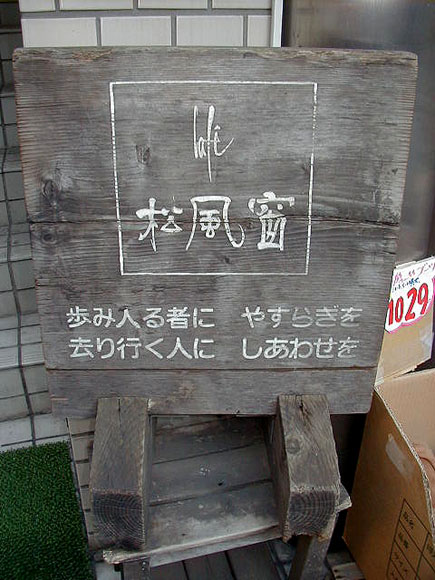 café
松風窗
歩み入る者に　やすらぎを
去り行く人に　しあわせを
1029